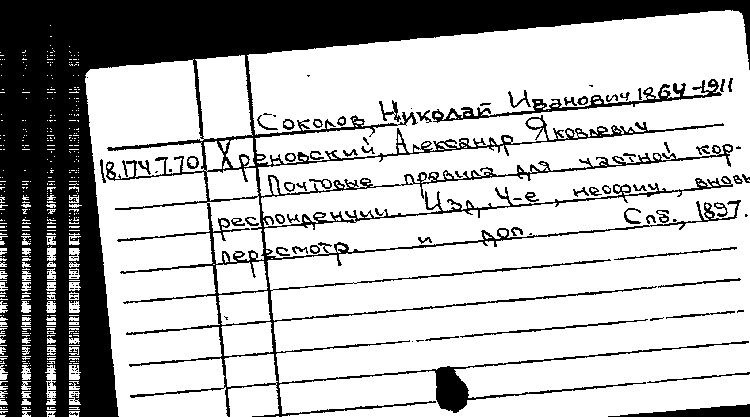 Соколов, Николай Иванович, 1864-1911
18.174.7.70. Хреновский, Александр Яковлевич
Почтовые правила для частной кор-
респонденции. Изд. 4-е, неофиц., вновь
пересмотр. и доп. Спб., 1897.